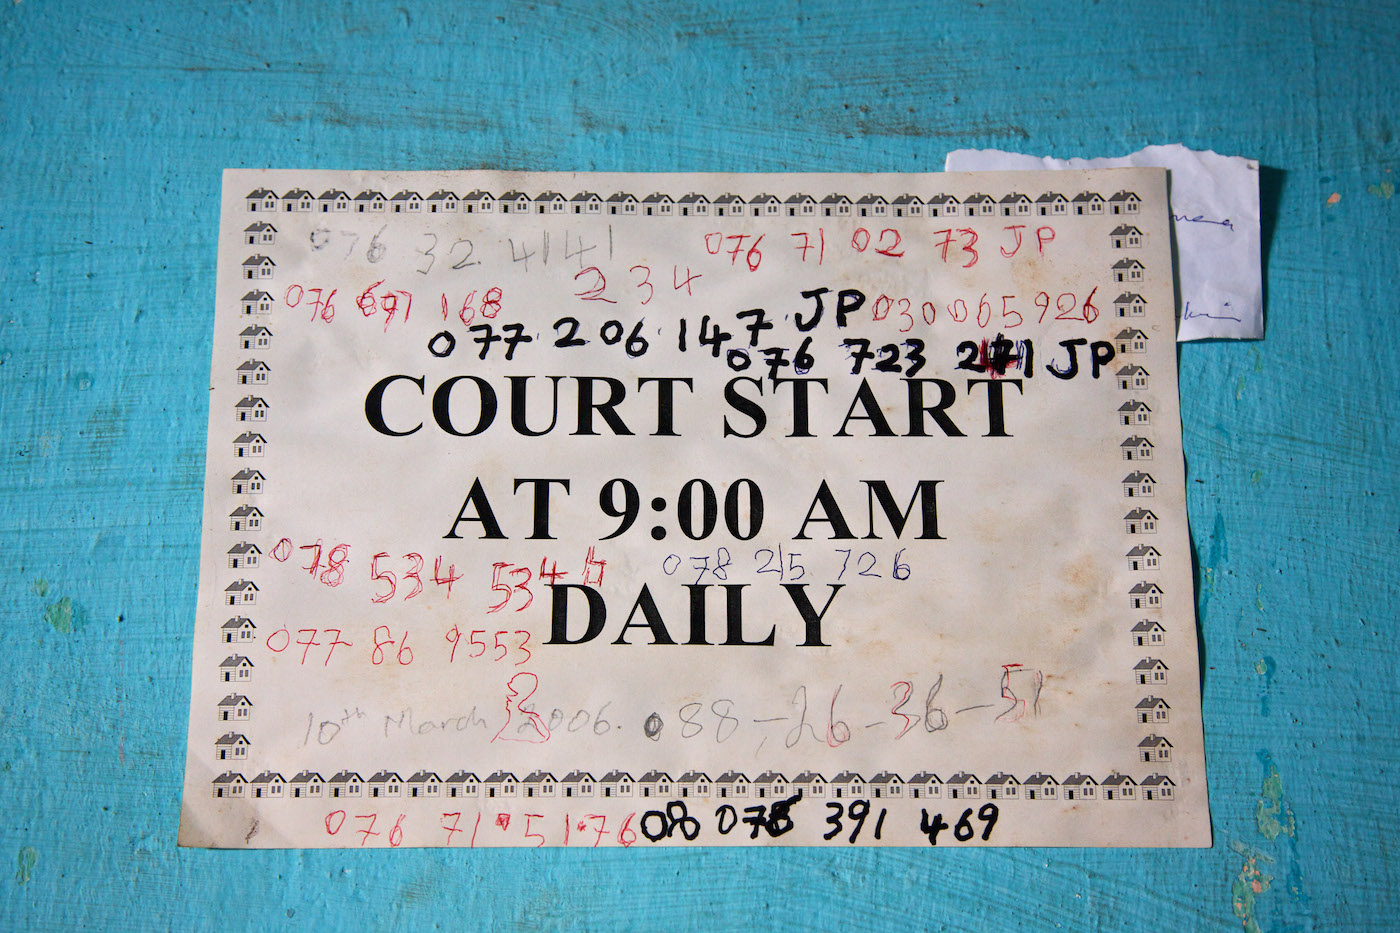 076 32 4141
076 71 02 73 JP
234
076 697 168
JP 030 065 926
077 206 147
076 723 271 JP
COURT START
AT 9:00 AM
078 534 534
078 215 726
DAILY
077 86 9553
10th March 2006. 088-26-36-51
076 71 51 76 08 078 391 469